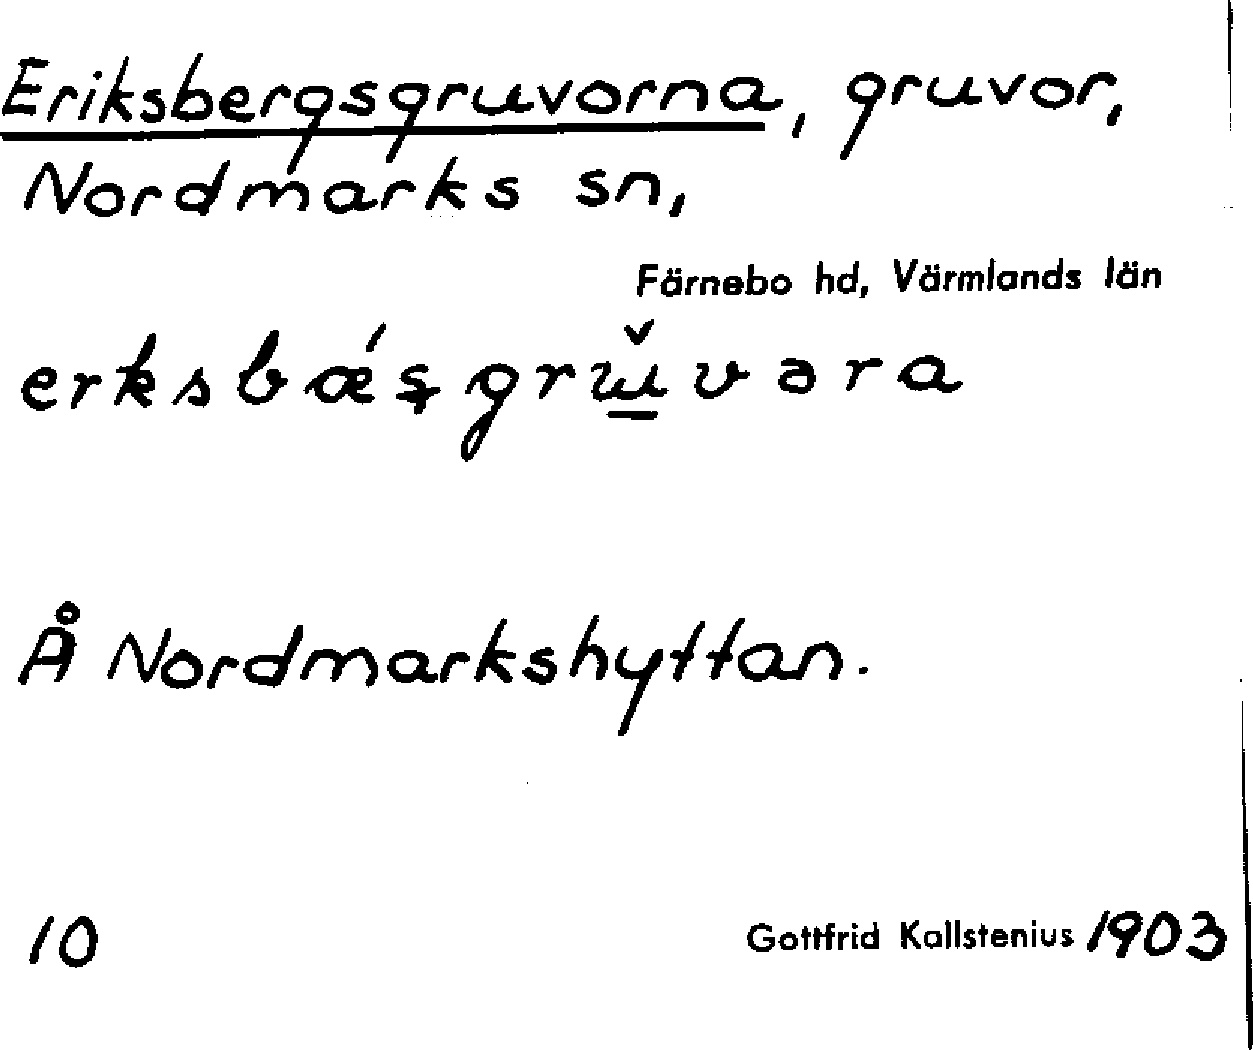 Eriksbergsgruvorna, gruvor,
Nordmarks sn,
Färnebo hd, Värmlands län
erksbǽş grɯ̲̌vəra
Å Nordmarkshyttan.
10
Gottfrid Kallstenius 1903